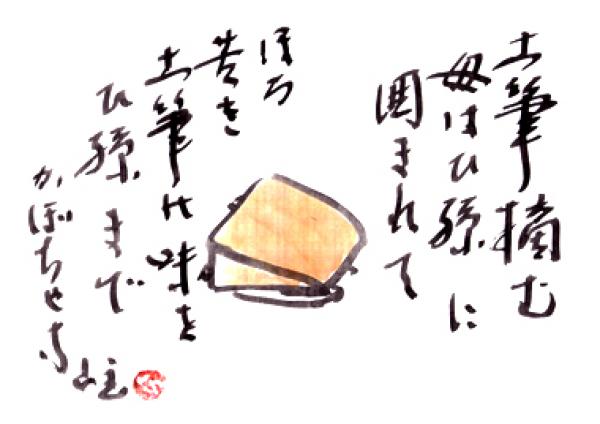 土筆摘む
母はひ孫に
囲まれて
ほろ
苦き
土筆の味を
ひ孫まで
かぼちゃ